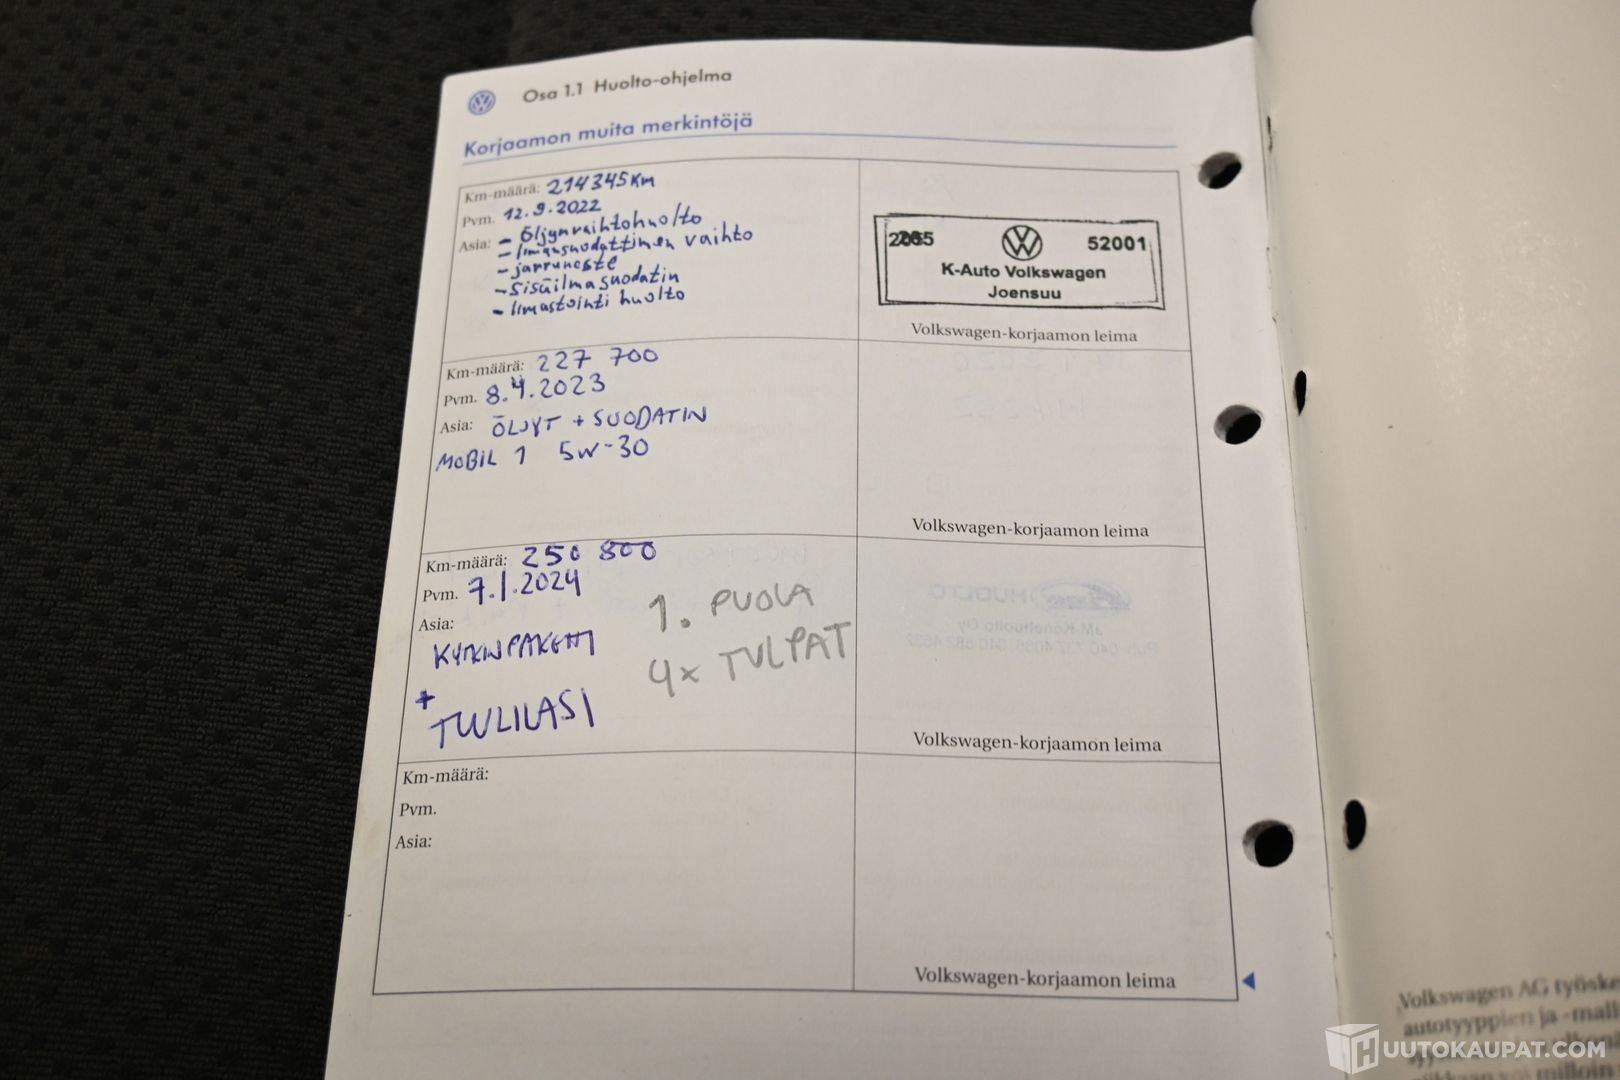 Osa 1.1 Huolto-ohjelma
Korjaamon muita merkintöjä
Km-määrä: 214345Km
Pvm. 12.9.2022
Asia: - Öljynvaihtohuolto
- Ilmansuodattimen vaihto
- jarruneste
- Sisäilmasuodatin
- Ilmastointi huolto
265 52001
K-Auto Volkswagen
Joensuu
Volkswagen-korjaamon leima
Km-määrä: 227 700
Pvm. 8.4.2023
Asia: ÖLJYT + SUODATIN
MOBIL 1 5W-30
Volkswagen-korjaamon leima
Km-määrä: 250 800
Pvm. 7.1.2024
Asia:
KYTKINPAKETTI
+
TUULILASI
1. PUOLA
4x TULPAT
Volkswagen-korjaamon leima
Km-määrä:
Pvm.
Asia:
Volkswagen-korjaamon leima
Volkswagen AG
autotyyppien ja
milloin
HUUTOKAUPAT.COM